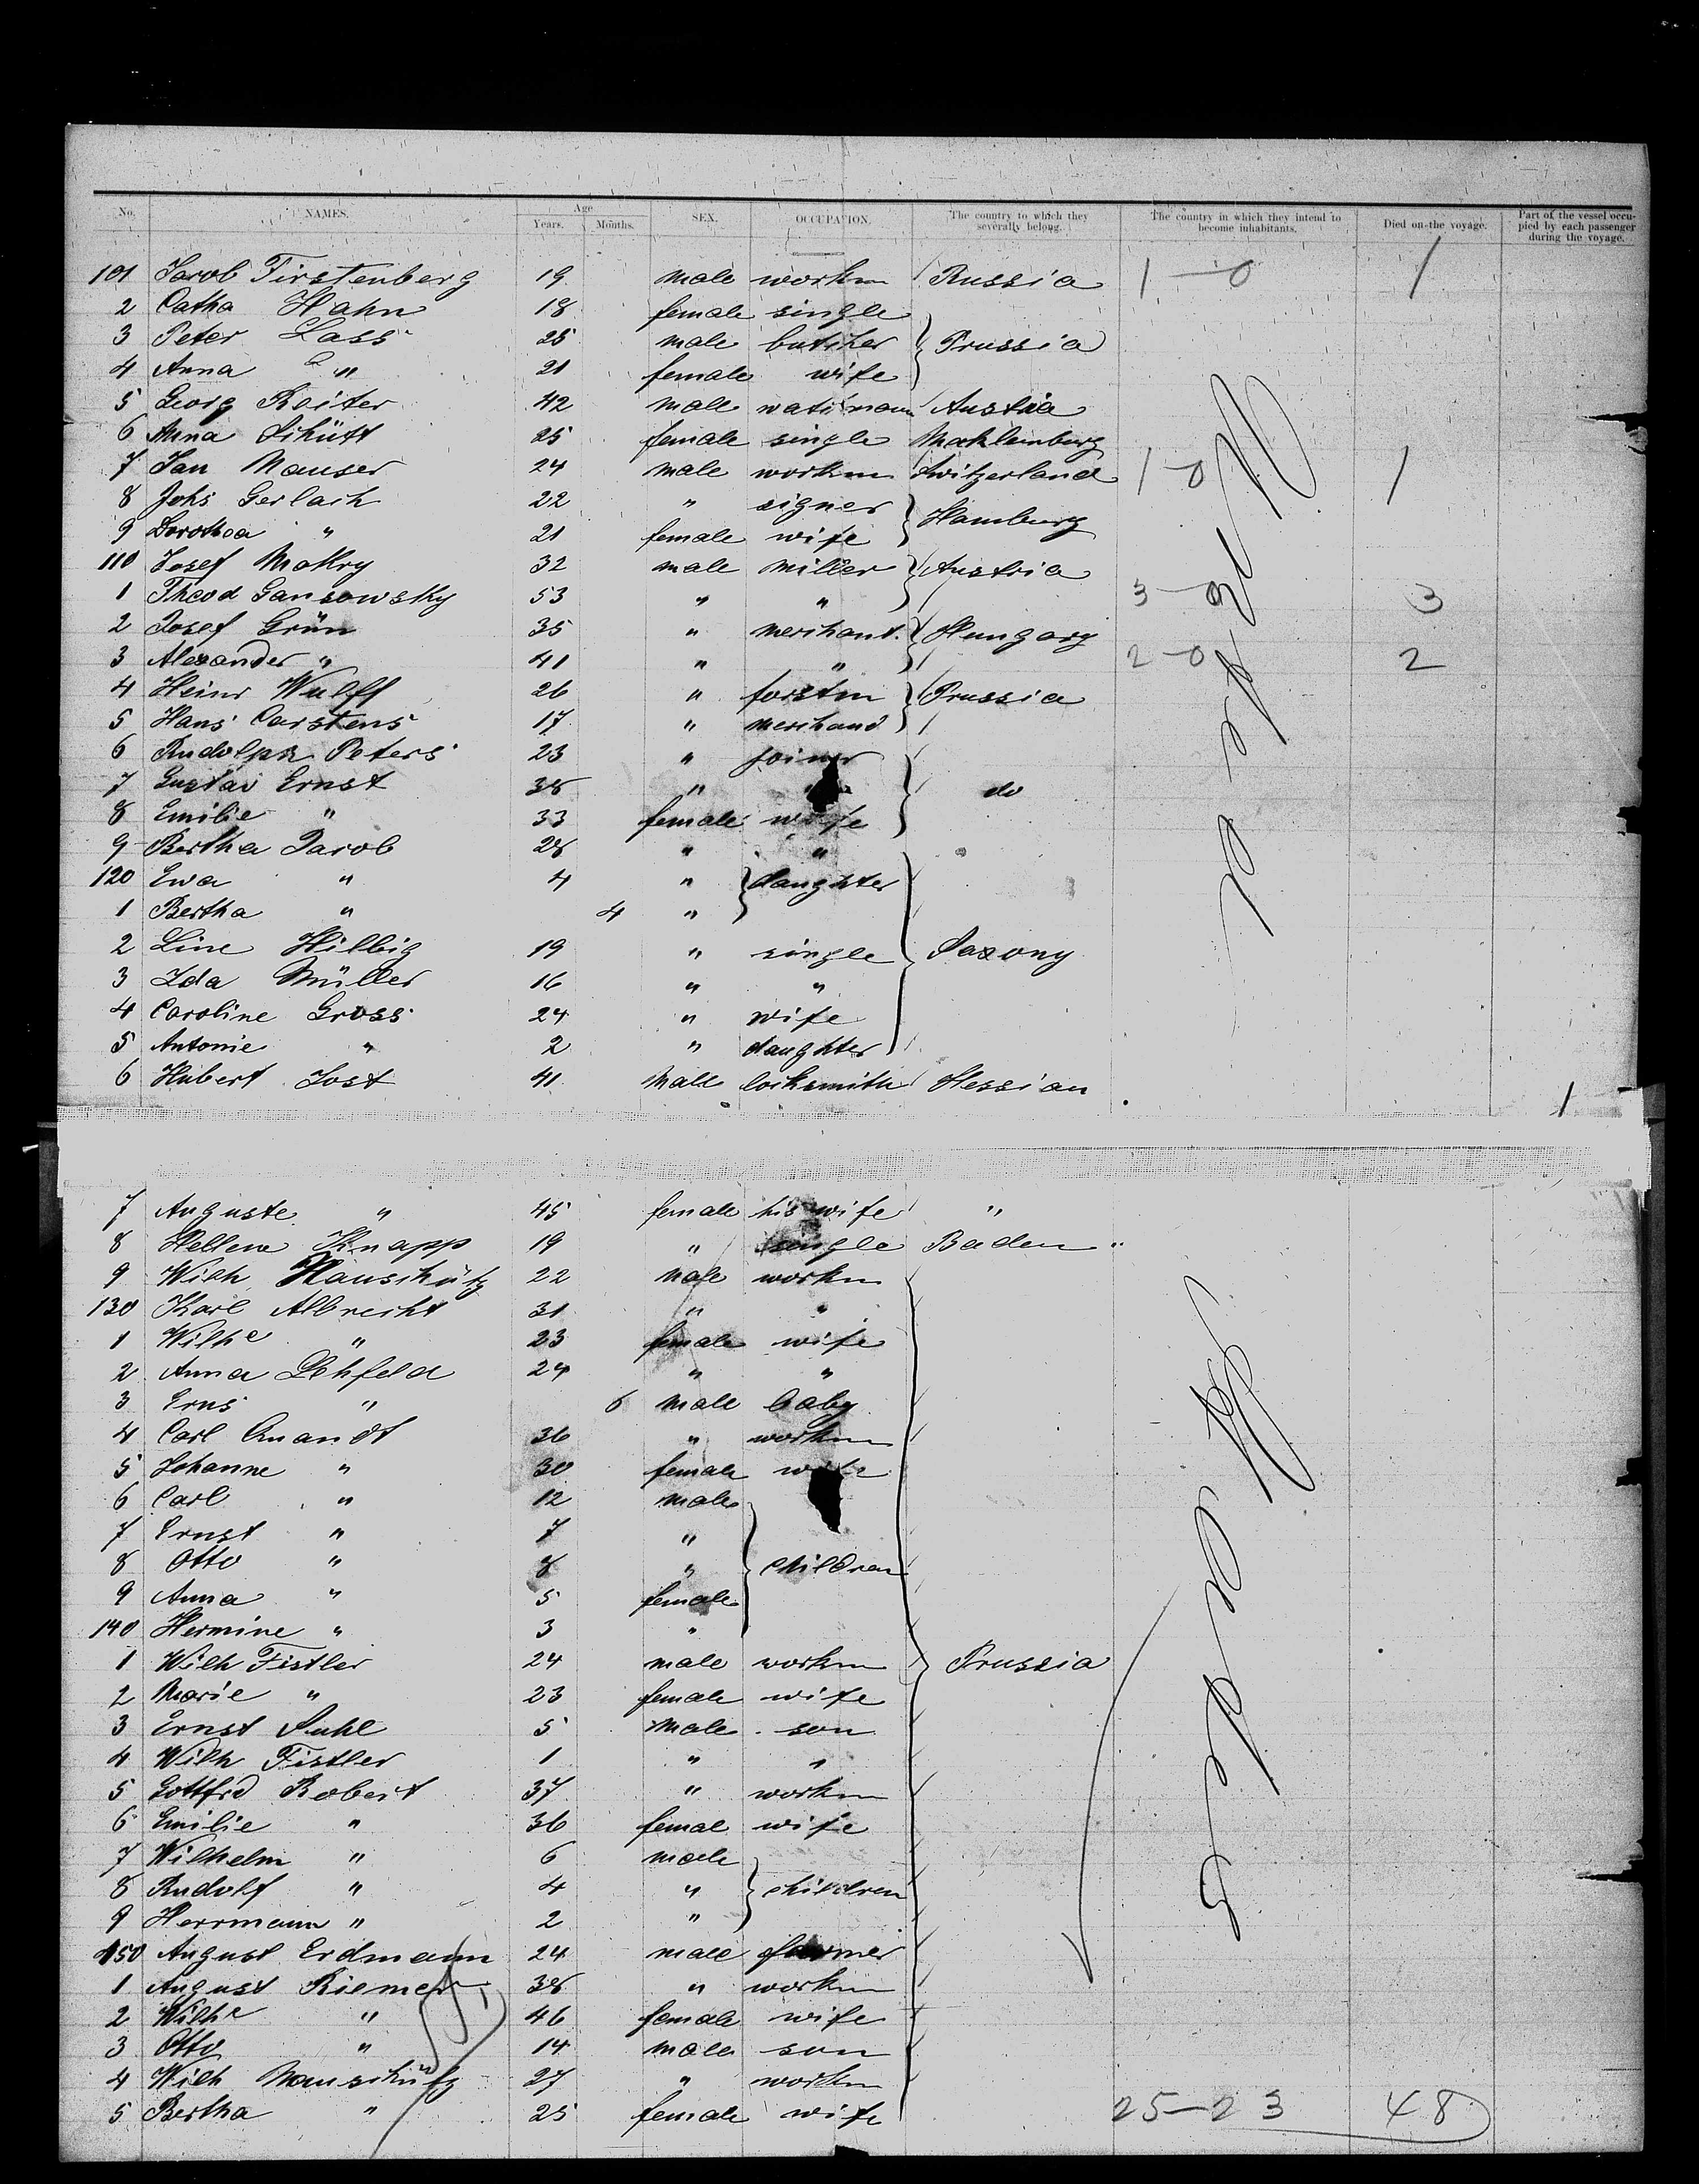 No. NAMES. Age Years. Months. SEX. OCCUPATION. The country to which they severally belong. The country in which they intend to become inhabitants. Died on the voyage. Part of the vessel occupied by each passenger during the voyage.
101 Jacob Firstenberg 19 male workm Russia 1-0 1
2 Catha Hahn 18 female single
3 Peter Lass 25 male butcher Prussia
4 Anna " 21 female wife
5 Georg Reiter 42 male Austria
6 Anna Schütt 25 female single Meklemburg
7 Jan Mauser 24 male workm Switzerland 1-0 1
8 Johs Gerlach 22 " signer Hamburg
9 Dorothea " 21 female wife
110 Josef Mokry 32 male miller Austria
1 Theod Gansowsky 53 " " 3-0 3
2 Josef Grün 35 " merchant. Hungary
3 Alexander " 41 " " 2-0 2
4 Heinr Wulff 26 " forstm Prussia
5 Hans Carstens 17 " merchand
6 Rudolph Peters 23 " joiner
7 Gustav Ernst 38 " " do
8 Emilie " 33 female wife
9 Bertha Jacob 28 " "
120 Ewa " 4 " daughter
1 Bertha " 4 "
2 Line Hilbig 19 " single Saxony
3 Ida Müller 16 " "
4 Caroline Gross 24 " wife
5 Antonie " 2 " daughter
6 Hubert Jost 41 male locksmith Hessian 1
7 Auguste " 45 female his wife "
8 Hellene Knapp 19 " single Baden "
9 Wilh Hauschütz 22 male workm
130 Karl Albrecht 31 " "
1 Wilhe " 23 female wife
2 Anna Lehfeld 24 " "
3 Erns " 6 male baby
4 Carl Quandt 36 " workm
5 Johanne " 30 female wife
6 Carl " 12 male
7 Ernst " 7 "
8 Otto " 8 " children
9 Anna " 5 female
140 Hermine " 3 "
1 Wilh Fistler 24 male workm Prussia
2 Marie " 23 female wife
3 Ernst Suhl 5 male son
4 Wilh Fistler 1 " "
5 Gottfrd Robert 37 " workm
6 Emilie " 36 femal wife
7 Wilhelm " 6 male
8 Rudolf " 4 " children
9 Herrmann " 2 "
150 August Erdmann 24 male farmer
1 August Riemer 38 " workm
2 Wilhe " 46 female wife
3 Otto " 14 male son
4 Wilh Mauschütz 27 " workm
5 Bertha " 25 female wife 25-23 48